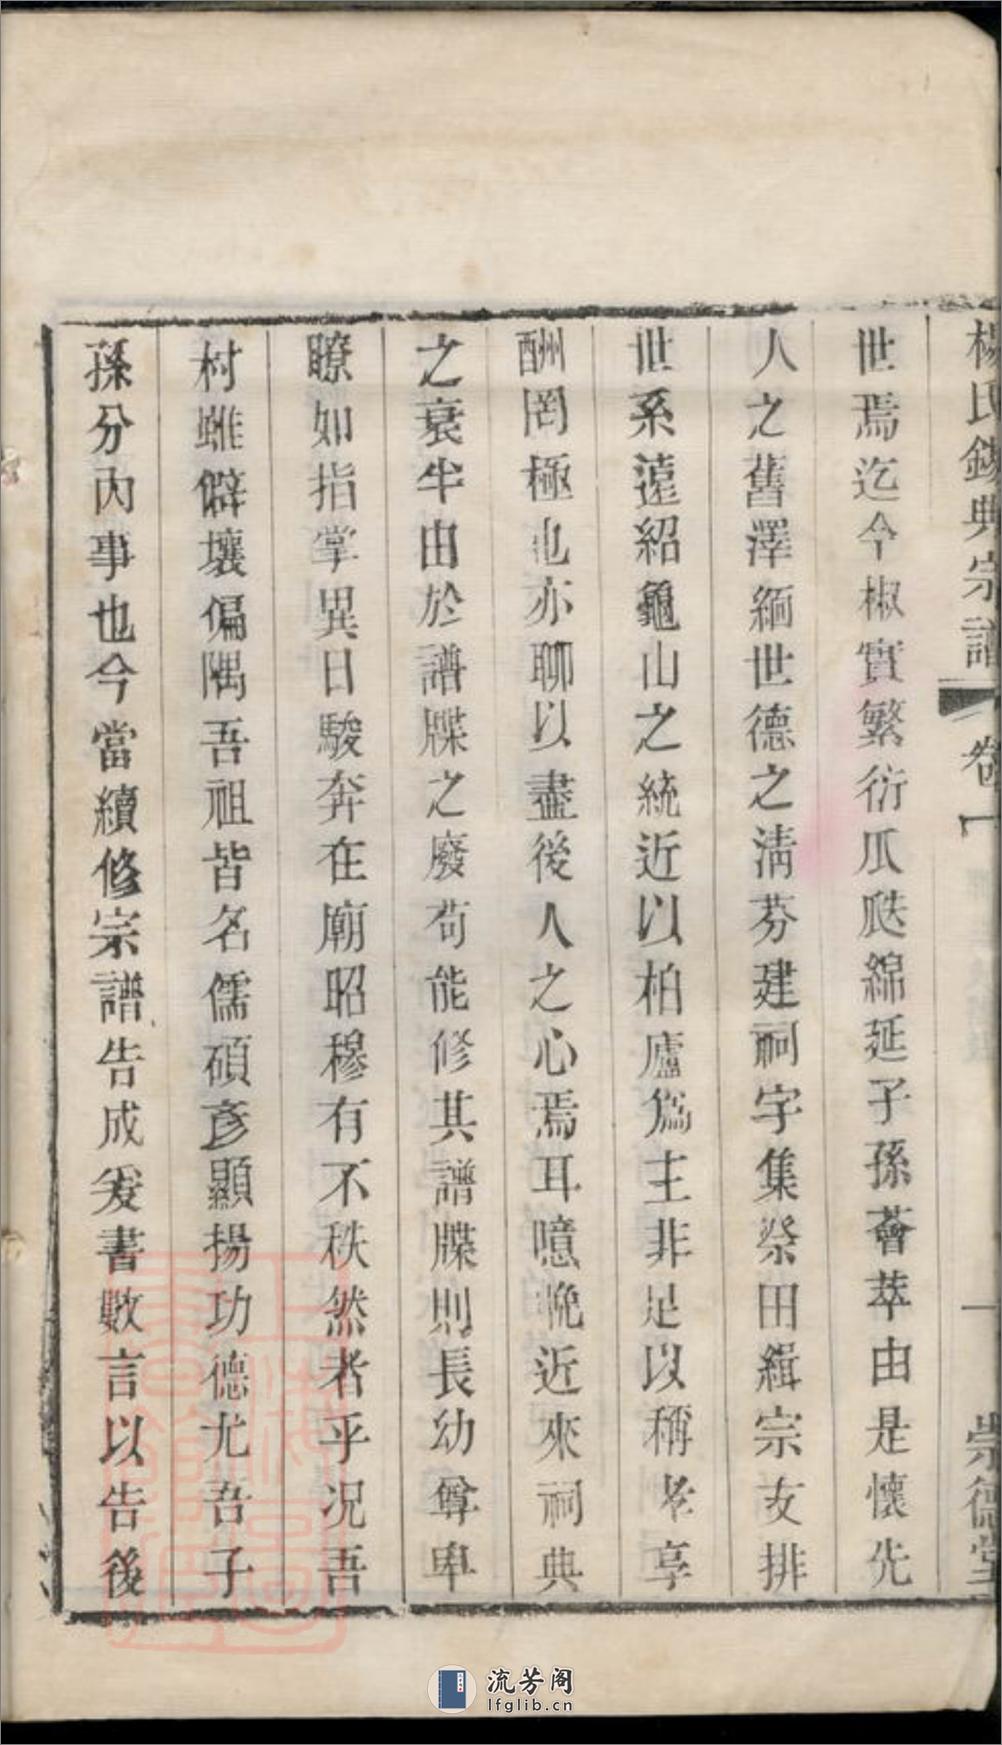 楊氏錫典宗譜 卷一 一 崇德堂
世焉迄今椒實繁衍瓜瓞綿延子孫薈萃由是懷先
人之舊澤緬世德之清芬建祠宇集祭田緝宗支排
世系遠紹龜山之統近以柏廬爲主非足以稱孝享
酬罔極也亦聊以盡後人之心焉耳噫晚近來祠典
之衰半由於譜牒之廢苟能修其譜牒則長幼尊卑
瞭如指掌異日駿奔在廟昭穆有不秩然者乎況吾
村雖僻壤偏隅吾祖皆名儒碩彥顯揚功德尤吾子
孫分內事也今當續修宗譜告成爰書數言以告後
流芳阁
lfglib.cn